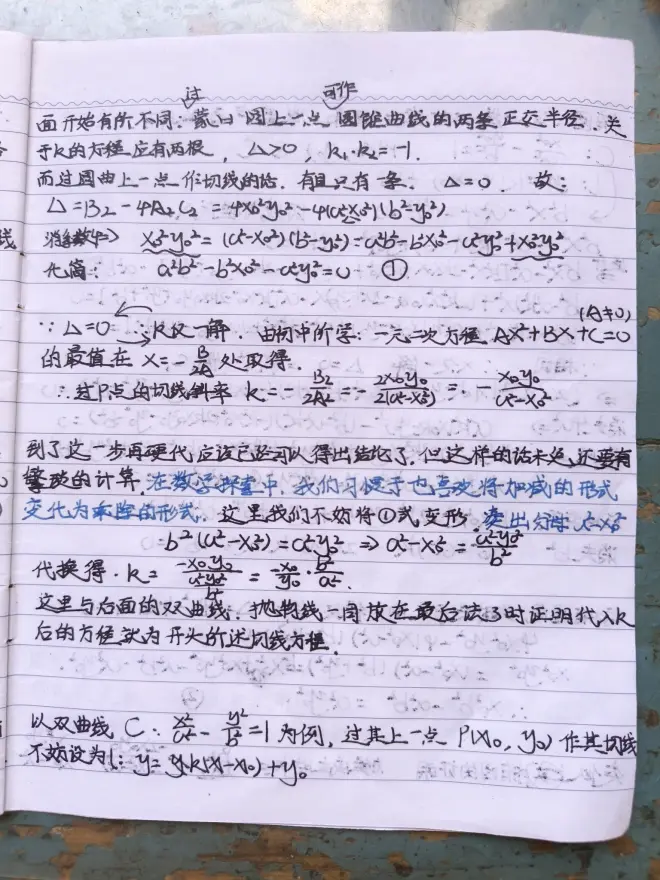 过 可作
面开始有所不同:蒙日圆上一点圆锥曲线的两条正交半径.关
于k的方程应有两根, △>0, k₁·k₂=-1.
而过圆曲上一点作切线的话.有且只有一条. △=0. 故:
△=B₂-4A₂C₂=4x₀²y₀²-4(a²-x₀²)(b²-y₀²)
消系数⇒ x₀²y₀²=(a²-x₀²)(b²-y₀²)=a²b²-b²x₀²-a²y₀²+x₀²y₀²
化简: a²b²-b²x₀²-a²y₀²=0 ①
∵△=0 ∴k仅一解. 由初中所学:一元二次方程 AX²+BX+C=0 (A≠0)
的最值在 x=-B/2A 处取得.
∴过P点的切线斜率 k=-B₂/2A₂=-2x₀y₀/2(a²-x₀²)=-x₀y₀/a²-x₀²
到了这一步再硬代应该已经可以得出结论了.但这样的话未免还要有
繁琐的计算.在数学探索中.我们习惯于也喜欢将加减的形式
变化为乘除的形式. 这里我们不妨将①式变形. 凑出分母 a²-x₀²
=b²(a²-x₀²)=a²y₀² ⇒ a²-x₀²=a²y₀²/b²
代换得. k=-x₀y₀/(a²y₀²/b²)=-x₀/y₀·b²/a².
这里与后面的双曲线.抛物线一同放在最后法3时证明代入k
后的方程就为开头所述切线方程.
以双曲线 C: x²/a²-y²/b²=1 为例,过其上一点 P(x₀, y₀) 作其切线
不妨设为l: y=k(x-x₀)+y₀